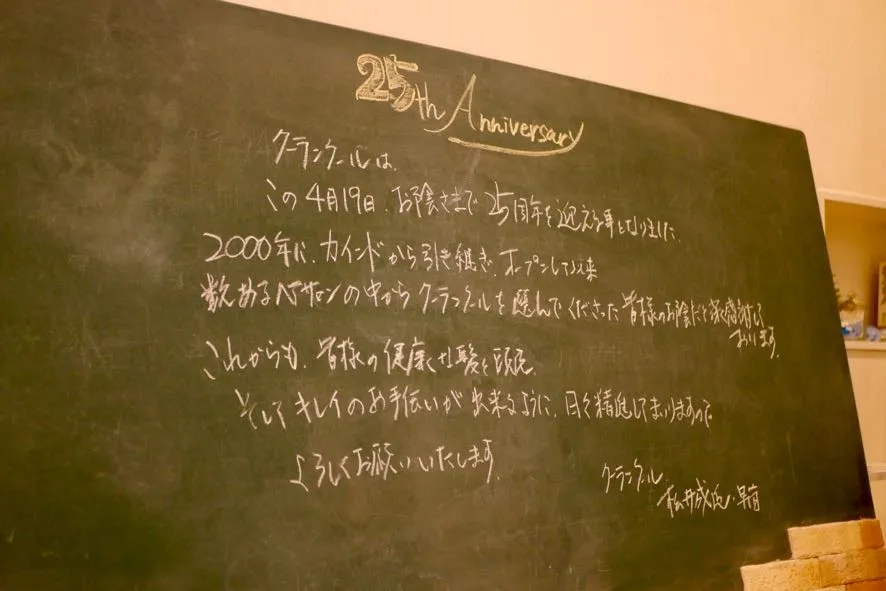 25th Anniversary
クーランクールは、
この4月19日、お陰さまで25周年を迎える事となりました。
2000年に、カインドから引き継ぎ、オープンして以来
数あるヘアサロンの中からクーランクールを選んでくださった皆様のお陰だと深く感謝して
おります。
これからも、皆様の健康な髪と頭皮、
そしてキレイのお手伝いが出来るように、日々精進してまいりますので
よろしくお願いいたします。
クーランクール
松井 早苗